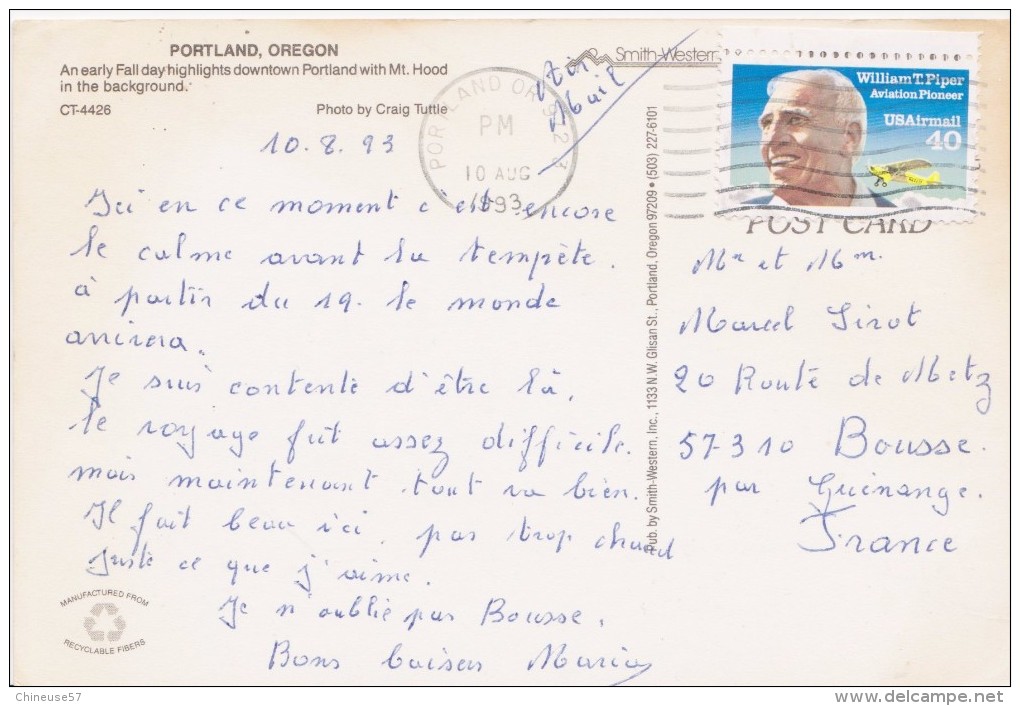 PORTLAND, OREGON
An early Fall day highlights downtown Portland with Mt. Hood
in the background.
CT-4426 Photo by Craig Tuttle
Smith-Western
Air
Mail
PORTLAND OR 972
PM
10 AUG
1993
William T. Piper
Aviation Pioneer
USAirmail
40
POST CARD
10.8.93
Ici en ce moment c est encore
le calme avant la tempète.
à partir du 19. le monde
arrivera.
Je suis contente d'être là,
le voyage fut assez difficile.
mais maintenant tout va bien.
Il fait beau ici, pas trop chaud
Juste ce que j'aime.
Je n'oublie pas Bousse.
Bons baisers Maria
Mr et Mm.
Marcel Sirot
20 Route de Metz
57310 Bousse.
par Guénange.
France
Pub. by Smith-Western, Inc., 1133 N.W. Glisan St., Portland, Oregon 97209 • (503) 227-6101
MANUFACTURED FROM
RECYCLABLE FIBERS
Chineuse57
delcampe.net